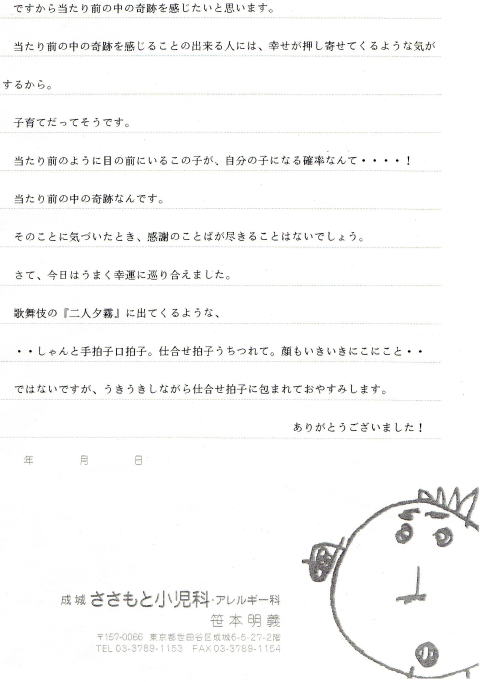 ですから当たり前の中の奇跡を感じたいと思います。
当たり前の中の奇跡を感じることの出来る人には、幸せが押し寄せてくるような気が
するから。
子育てだってそうです。
当たり前のように目の前にいるこの子が、自分の子になる確率なんて・・・・！
当たり前の中の奇跡なんです。
そのことに気づいたとき、感謝のことばが尽きることはないでしょう。
さて、今日はうまく幸運に巡り合えました。
歌舞伎の『二人夕霧』に出てくるような、
・・しゃんと手拍子口拍子。仕合せ拍子うちつれて。顔もいきいきにこにこと・・
ではないですが、うきうきしながら仕合せ拍子に包まれておやすみします。
ありがとうございました！
年 月 日
成城 ささもと小児科・アレルギー科
笹本明義
〒157-0066 東京都世田谷区成城6-5-27-2階
TEL 03-3789-1153 FAX 03-3789-1154